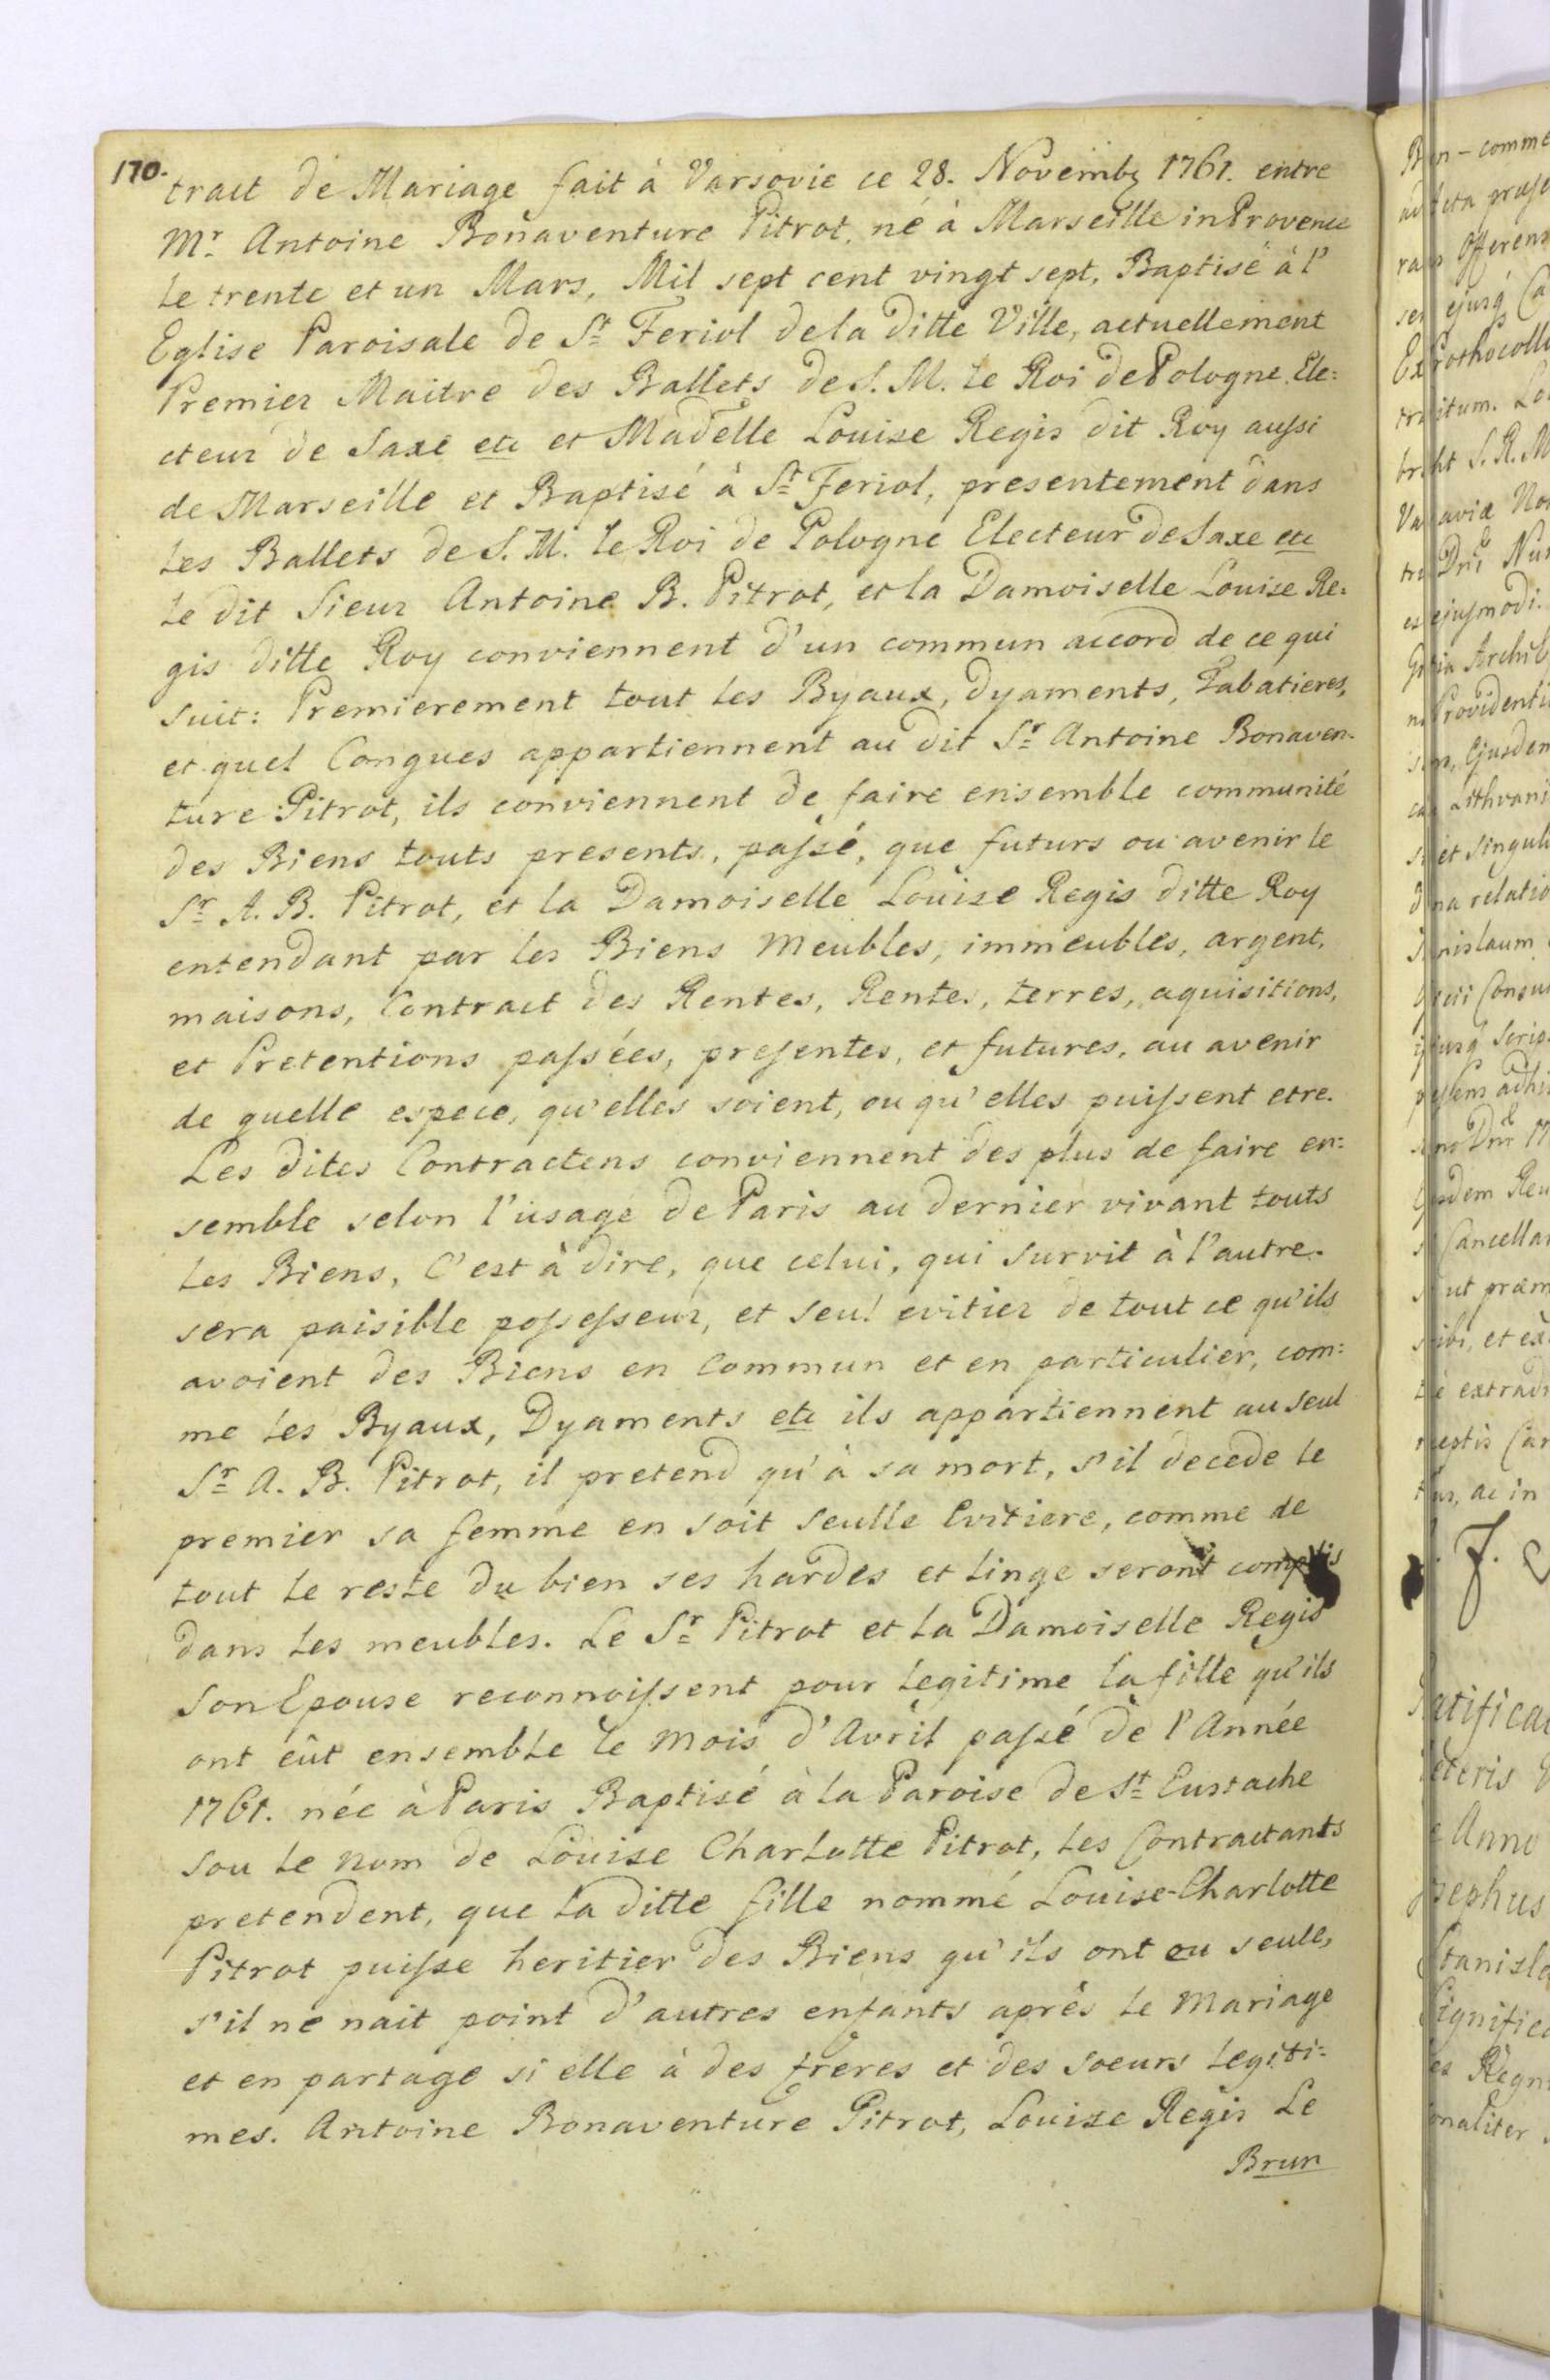 170.
tract de Mariage fait à Varsovie ce 28. Novembꝫ 1761. entre
Mr. Antoine Bonaventure Pitrot. né à Marseille in Provence
le trente et un Mars, Mil sept cent vingt sept, Baptisé à l'
Eglise Paroisale de St Feriol de la ditte Ville, actuellement
Premier Maitre des Ballets de S. M. le Roi de Pologne Ele:
cteur de Saxe etc et Madelle Louise Regis dit Roy aussi
de Marseille et Baptisé à St Feriol, presentement dans
les Ballets de S. M. le Roi de Pologne Electeur de Saxe etc
le dit Sieur Antoine B. Pitrot, et la Damoiselle Louise Re:
gis ditte Roy conviennent d'un commun accord de ce qui
suit: Premierement tout les Byaux, Dyaments, Tabatieres,
et quel Congues appartiennent au dit Sr Antoine Bonaven-
ture Pitrot, ils conviennent de faire ensemble communité
des Biens touts presents, passé, que futurs ou avenir le
Sr A. B. Pitrot, et la Damoiselle Louise Regis ditte Roy
entendant par les Biens Meubles, immeubles, argent,
maisons, Contract des Rentes, Rentes, terres, aquisitions,
et Pretentions passées, presentes, et futures, au avenir
de quelle espece, qu'elles soient, ou qu'elles puissent etre.
Les dites Contractens conviennent des plus de faire en:
semble selon l'usage de Paris au dernier vivant touts
les Biens, C'est à dire, que celui, qui survit à l'autre.
sera paisible possesseur, et seul evitier de tout ce qu'ils
avoient des Biens en Commun et en particulier, com:
me les Byaux, Dyaments etc ils appartiennent au seul
Sr A. B. Pitrot, il pretend qu'à sa mort, s'il decede le
premier sa femme en soit seulle Evitiere, comme de
tout le reste du bien ses hardes et linge seront compris
dans les meubles. Le Sr Pitrot et la Damoiselle Regis
son Epouse reconnoissent pour legitime la fille qu'ils
ont eût ensemble le mois d'Avril passé de l'Année
1761. née à Paris Baptisé à la Paroise de St Eustache
sou le nom de Louise Charlotte Pitrot, les Contractants
pretendent, que la ditte fille nommé Louise-Charlotte
Pitrot puisse heritier des Biens qu'ils ont eu seule,
s'il ne nait point d'autres enfants aprês le Mariage
et en partage si elle à des freres et des soeurs legiti-
mes. Antoine Bonaventure Pitrot, Louise Regis Le
Brun